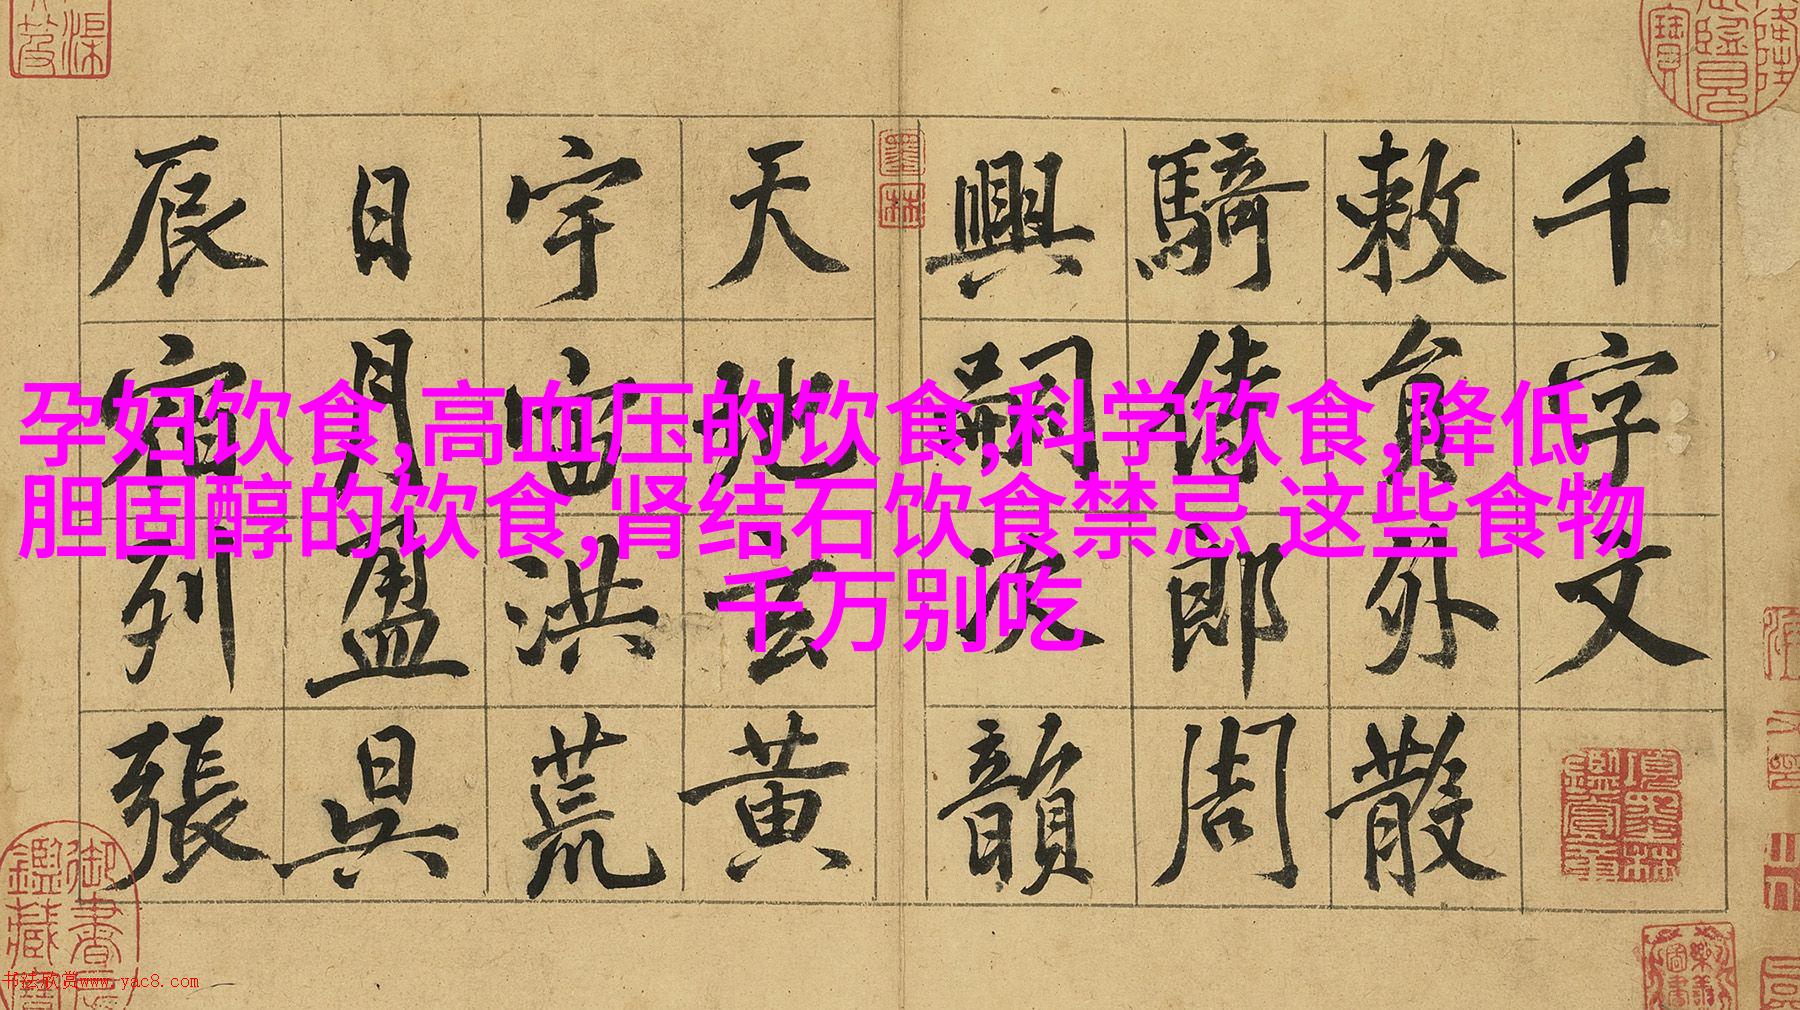 孕妇饮食,高血压的饮食,科学饮食,降低
胆固醇的饮食,肾结石饮食禁忌 这些食物
千万别吃
千字文
敕員外散
騎侍郎周
興嗣次韻
天地玄黄
宇宙洪荒
日月盈昃
辰宿列張
墨林
項墨林鑑賞章
书法欣赏www.yac8.com